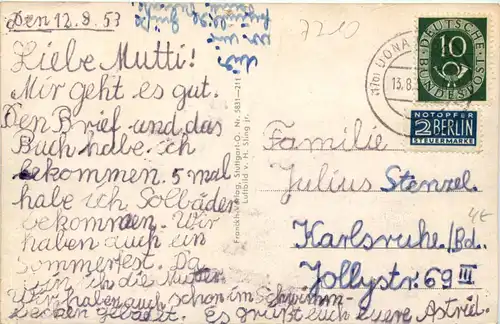 Den 12.8.53
Liebe Mutti!
Mir geht es gut.
Den Brief und das
Buch habe ich
bekommen. 5 mal
habe ich Solbäder
bekommen. Wir
haben auch ein
Sommerfest. Da
bin ich die Mutter.
Wir haben auch schon im Schwimm-
becken gebadet. Es grüßt euch euere Astrid.
7210
Franckh-Verlag, Stuttgart-O. Nr. 5831—211
Luftbild v. H. Sting jr.
(17b) DONA
13.8.5
DEUTSCHE BUNDESPOST
10
NOTOPFER
2 BERLIN
STEUERMARKE
Familie
Julius Stenzel
4€
Karlsruhe/Bd.
Jollystr. 69 III